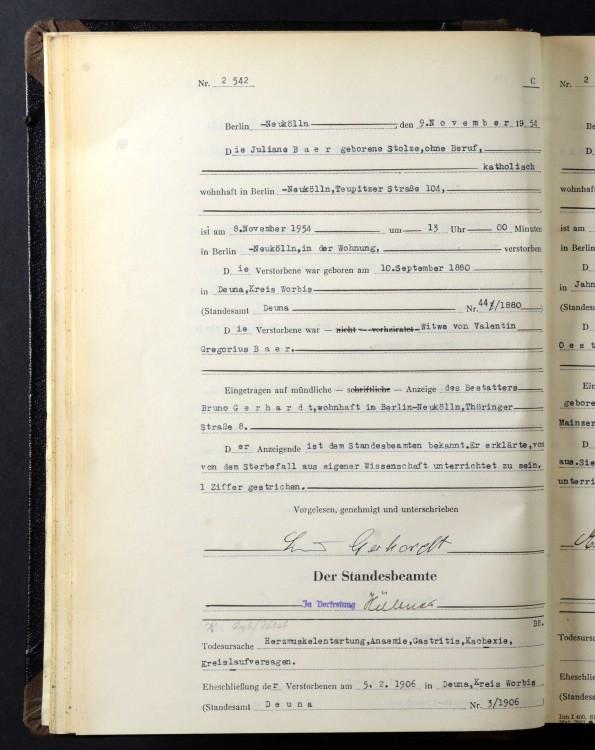 Nr. 2 542 C
Berlin -Neukölln, den 9.November 1954
Die Juliane Baer geborene Stolze,ohne Beruf,
katholisch
wohnhaft in Berlin -Neukölln,Teupitzer Straße 104,
ist am 8.November 1954 um 13 Uhr 00 Minuten
in Berlin -Neukölln,in der Wohnung, verstorben
Die Verstorbene war geboren am 10.September 1880
in Deuna,Kreis Worbis
(Standesamt Deuna Nr. /1880 )
Die Verstorbene war — nicht — verheiratet Witwe von Valentin
Gregorius Baer.
Eingetragen auf mündliche — schriftliche — Anzeige des Bestatters
Bruno Gerhardt,wohnhaft in Berlin-Neukölln,Thüringer
Straße 8.
Der Anzeigende ist dem Standesbeamten bekannt.Er erklärte,von
von dem Sterbefall aus eigener Wissenschaft unterrichtet zu sein.
1 Ziffer gestrichen.
Vorgelesen, genehmigt und unterschrieben
Gerhardt
Der Standesbeamte
In Vertretung
DB.
Todesursache Herzmuskelentartung,Anaemie,Gastritis,Kachexie,
Kreislaufversagen.
Eheschließung der Verstorbenen am 5. 2. 1906 in Deuna,Kreis Worbis
(Standesamt Deuna Nr. 3/1906 )
Nr. 2
Be
D
wohnhaft
ist am
in Berlin
D
in Jahn
(Standesa
D
Oest
Ein
gebore
Mainzer
D
aus.Sie
unterri
Todesursa
Eheschlie
(Standesa